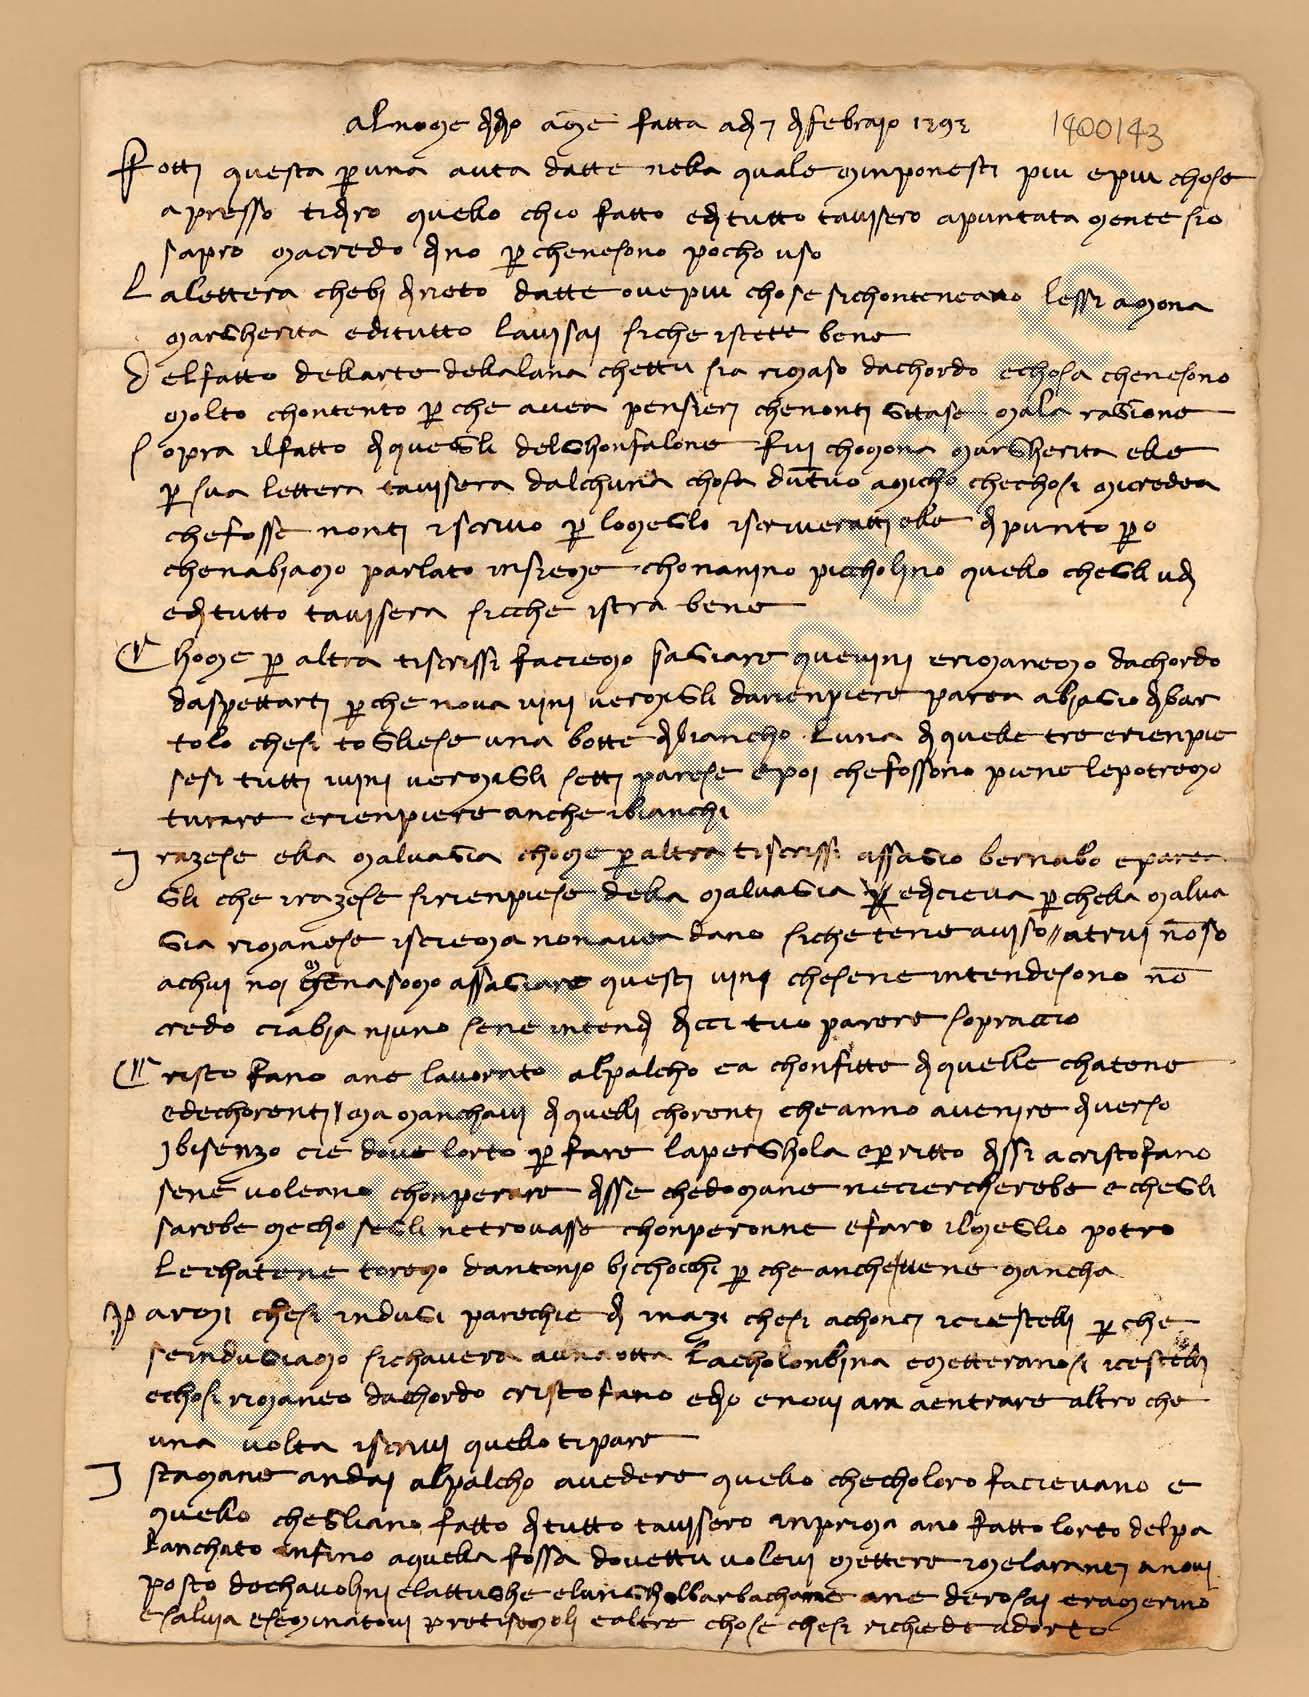 al nome di dio ame fatta adi 7 di febraio 1393
1400143
Fotti questa p una auta datte nella quale minponesti piu e piu chose
apresso tidiro quello chio fatto edi tutto tavissero apuntata mente sio
sapro ma credo di no p che nesono pocho uso
La lettera chebi dirieto datte ove piu chose si chonteneano lessi a mona
margherita e di tutto lavisai siche istette bene
Del fatto dellarte della lana chettu sia rimaso dachordo e chosa che ne sono
molto chontento p che avea pensieri che nonti gittase mala ragione
Sopra il fatto di quegli del ghonfalone fui cho mona margherita elle
p sua lettera tavisera dalchuna chosa dun tuo amicho che chosi mi credea
che fosse nonti iscrivo p lo meglo iscriveratti elle di punto p o
che nabiamo parlato insieme cho nanino piccholino quello che gli udi
edi tutto tavisera sicche istra bene
Chome p altra ti scrissi faciemo saGiare que vini e rimanemo dachordo
daspettarti p che nova vini vermigli darienpiere parea a biagio di bar
tolo che si togliese una botte di biancho luna di quelle tre e rienpie
sesi tutti i vini vermigli setti parese e poi che fossono piene le potremo
turare e rienpiere anche i bianchi
I razese ella malvagia chome p altra ti scrissi assagio bernabo e parea
gli che i razese si rienpiese della malvagia edicieva p chella malva
gia rimanese isciema non avea dano siche tene aviso // atrui no so
a chui noi meniasomo assagiare questi vini che sene intendesono no
credo ci abia niuno sene intendi dicci tuo parere sopraccio
Cristofano ane lavorato al palcho e a chonfitte di quelle chatene
e de chorenti ma manchavi di quelli chorenti che anno a venire diverso
i bisenzo cie dove lorto p fare la perghola e p ritto dissi a cristofano
sene voleano chonperare disse che domane ne ciercherebe e che gli
sarebe mecho segli ne trovasse chonperonne e faro il meglio potro
Le chatene toremo dantonio bicchocchi p che anche vene mancha
Parmi che si indugi parechie di inazi che si achonci i ciestelli p che
se indugiamo si chavera a una otta la cholonbina e metteranosi i cestelli
e chosi rimaneo dachordo cristofano ed io e novi ara a entrare altro che
una volta iscrivi quello ti pare
I stamane andai al palcho a vedere quello che choloro facievano e
quello che gliano fatto di tutto tavissero in prima ano fatto lorto del pa
lanchato infino a quella fossa dovettu volevi mettere i melaranci anovi
posto de chavolini e lattughe e lungh al barbachane ane de rosai e ramerino
e salvia e seminatovi pretisemoli e altre chose che si richiede ad orto